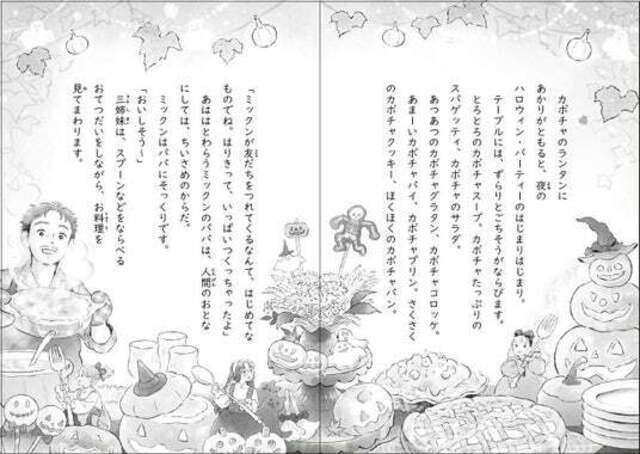 カボチャのランタンに
あかりがともると、夜の
ハロウィン・パーティーのはじまりはじまり。
テーブルには、ずらりとごちそうがならびます。
とろとろのカボチャスープ。カボチャたっぷりの
スパゲッティ、カボチャのサラダ。
あつあつのカボチャグラタン、カボチャコロッケ。
あまーいカボチャパイ、カボチャプリン。さくさく
のカボチャクッキー、ほくほくのカボチャパン。
「ミックンが友だちをつれてくるなんて、はじめてな
ものでね。はりきって、いっぱいつくっちゃったよ」
あははとわらうミックンのパパは、人間のおとな
にしては、ちいさめのからだ。
ミックンはパパにそっくりです。
「おいしそう～」
三姉妹は、スプーンなどをならべる
おてつだいをしながら、お料理を
見てまわります。